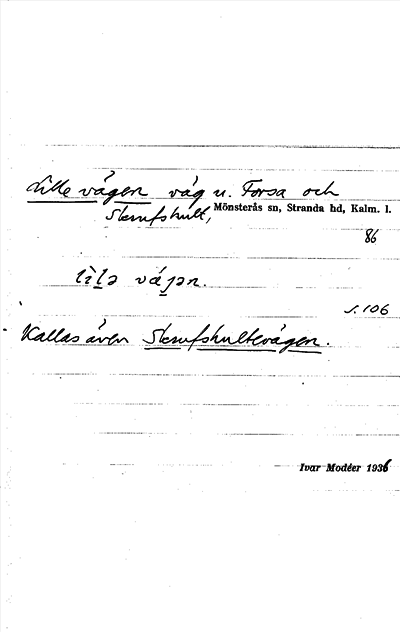 Lille vägen väg u. Forsa och
Skrufshult, Mönsterås sn, Stranda hd, Kalm. l.
86
lìlə vá̱jən.
s. 106
Kallas även Skrufshultevägen.
Ivar Modéer 1936